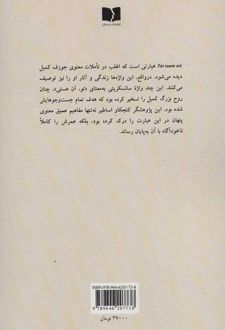 Tat tuam asi عبارتی است که اغلب در تأملات معنوی جوزف کمبل
دیده می‌شود. درواقع، این واژه‌ها زندگی و آثار او را نیز توصیف
می‌کنند. این چند واژهٔ سانسکریتی به‌معنای «تو، آن هستی»، چنان
روح بزرگ کمبل را تسخیر کرده بود که هدف تمام جست‌وجوهایش
شده بود. این پژوهشگر کنجکاو اساطیر نه‌تنها مفاهیم عمیق معنوی
پنهان در این عبارت را درک کرده بود، بلکه عمرش را کاملاً
ناخودآگاه با آن به‌پایان رساند.
ISBN: 978-964-6207-73-8
9789646207738
۳۷۰۰۰ تومان